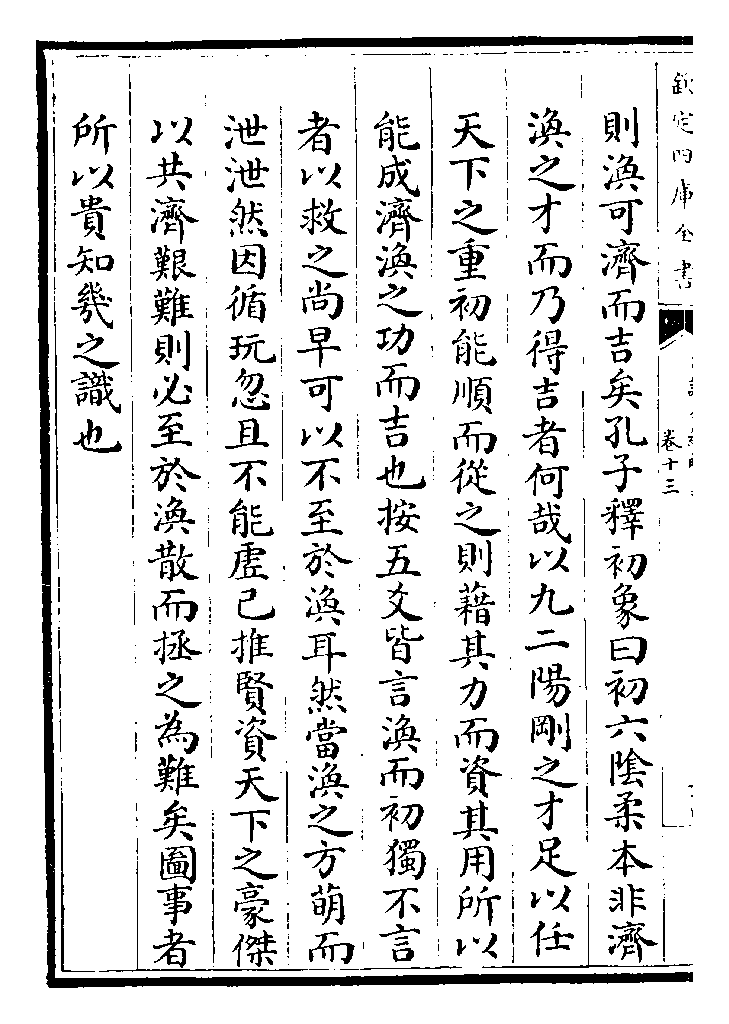 欽定四庫全書
卷十三
則渙可濟而吉矣孔子釋初象曰初六陰柔本非濟
渙之才而乃得吉者何哉以九二陽剛之才足以任
天下之重初能順而從之則藉其力而資其用所以
能成濟渙之功而吉也按五爻皆言渙而初獨不言
者以救之尚早可以不至於渙耳然當渙之方萌而
泄泄然因循玩忽且不能虛已推賢資天下之豪傑
以共濟艱難則必至於渙散而拯之為難矣圖事者
所以貴知幾之識也